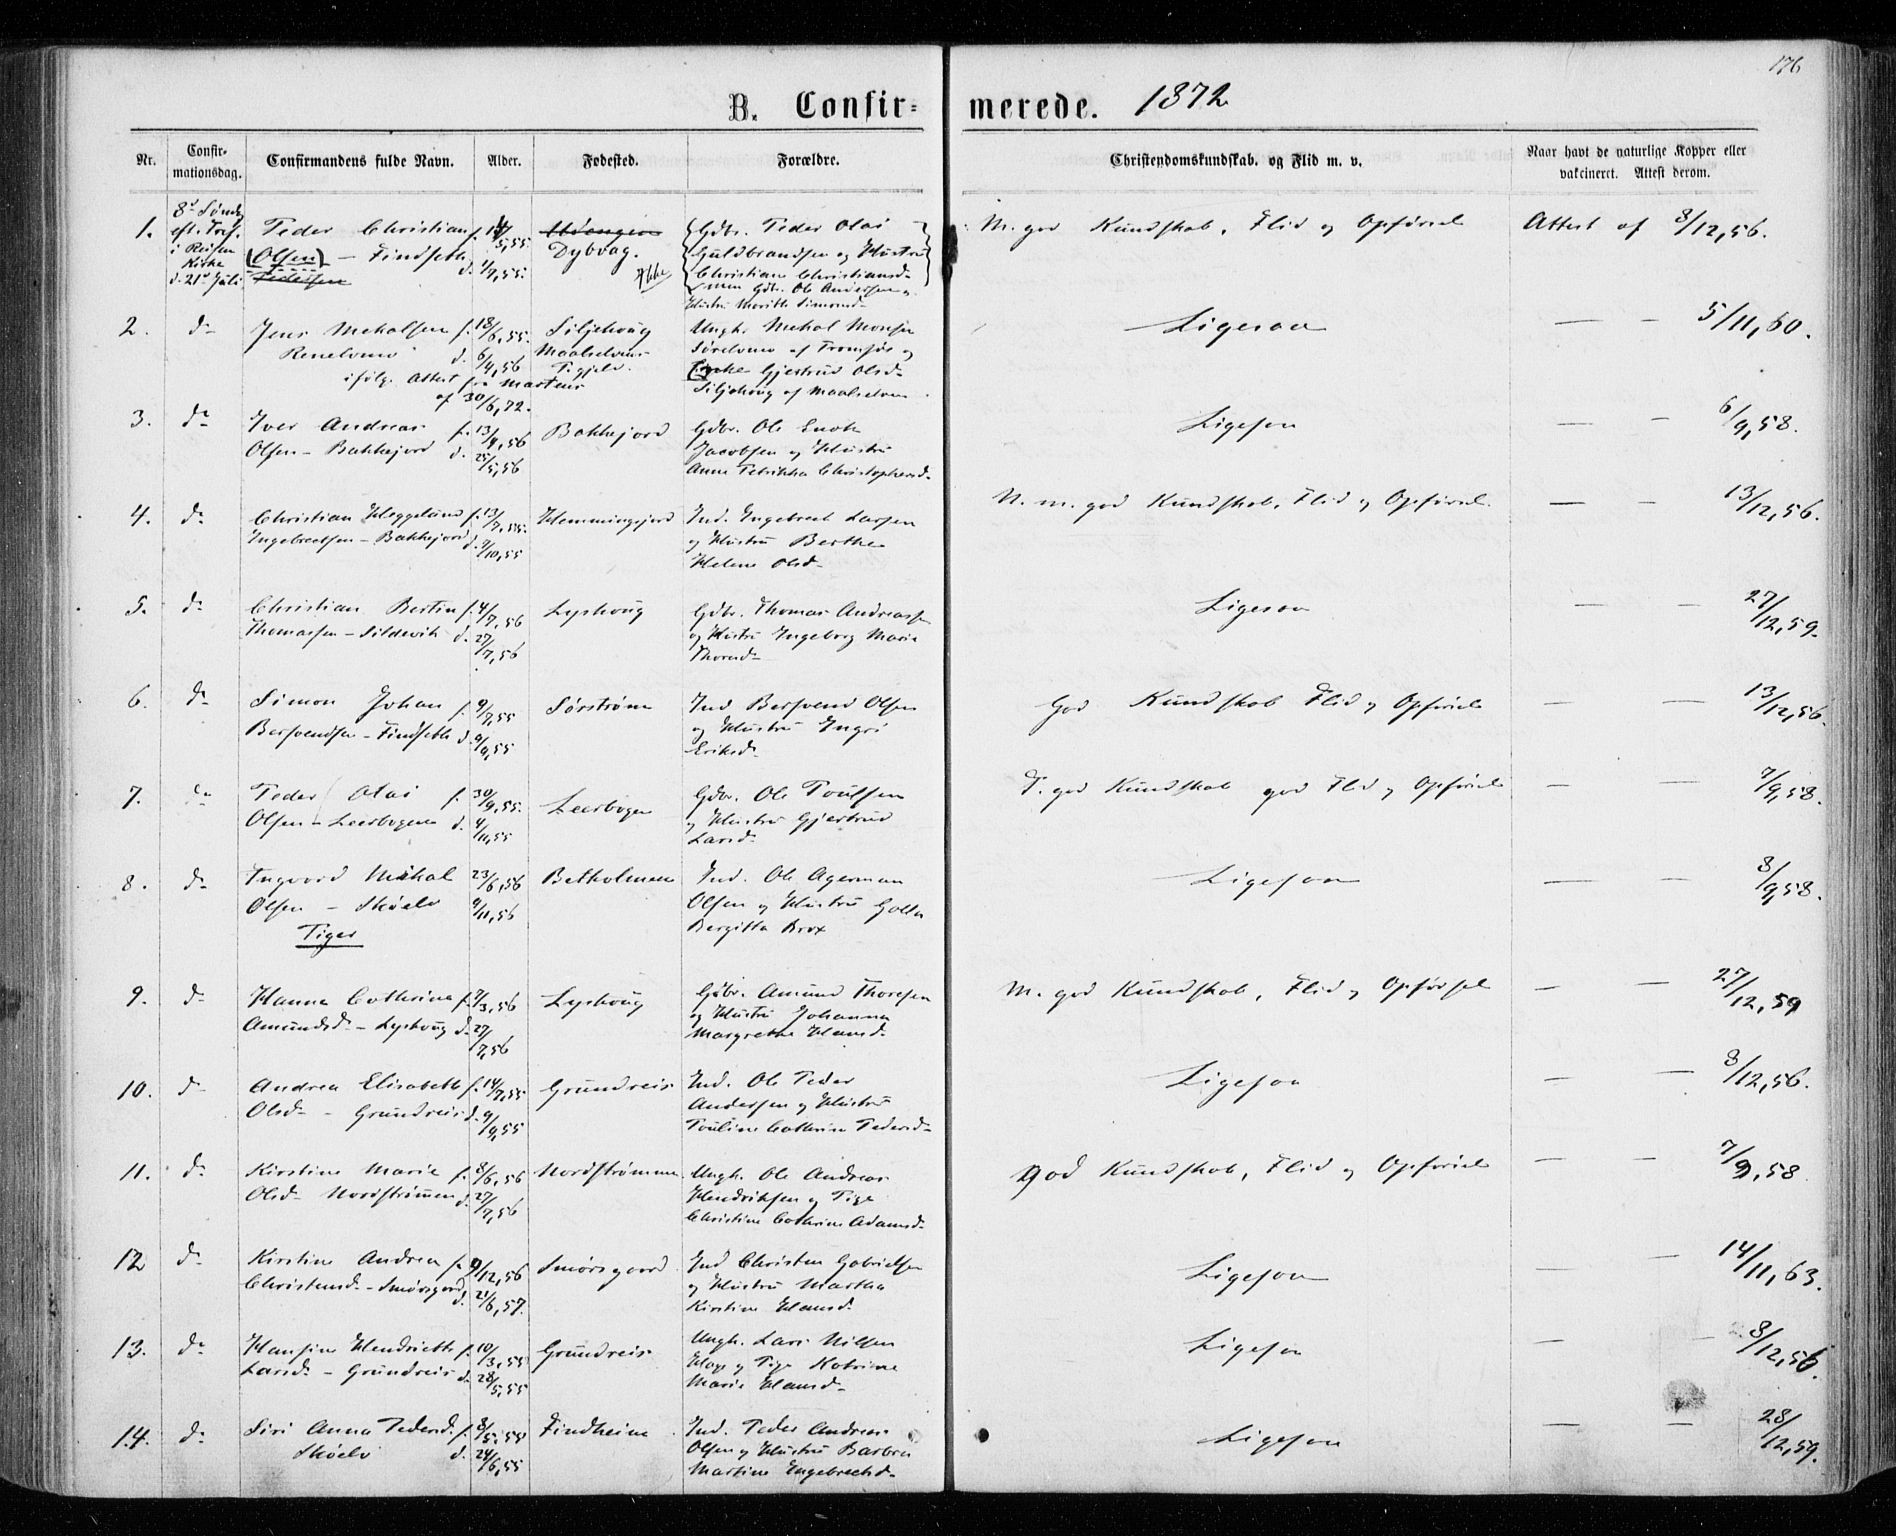 176
B. Confir- merede. 1872
Nr.
Confir-
mationsdag.
Confirmandens fulde Navn.
Alder.
Fødested.
Forældre.
Christendomskundskab. og Flid m. v.
Naar havt de naturlige Kopper eller
vakcineret. Attest derom.
1.
8de Sønd.
eft. Tref.
i Reisen
Kirke
d. 21de Juli
Peder Christian f.
(Olsen) - Findseth d.
Pedersen
5,55.
1/7,55.
Dybvag.
Gdbr. Peder Olai
Guldbrandsen og Hustru
Christiane Christiansd.
men Gdbr. Ole Andersen og
Hustru Marith Simonsd.
M. god Kundskab, Flid og Opførsel
Attest af 8/12,56.
2. do
Jens Mekalsen f. 18/6,55.
Renelvmo d. 6/4,56
ifølg. Attest fra Marteus
af 30/6,72.
Siljehoug
Maalselvens
Pgjeld.
Ungk. Mekal Monsen
Sørelvmo af Tromsøs og
Enke Gjertrud Olsd.
Siljehoug af Maalselven
Ligesaa
— — 5/11,60.
3. do
Iver Andreas f. 13/4,56
Olsen - Bakkejord d. 25/5,56
Bakkejord
Gdbr. Ole Enok
Jacobsen og Hustru
Anne Petrikka Christophersd.
Ligesaa
— — 6/9,58.
4. do
Christian Heggelund f. 13/7,55.
Ingebretsen - Bakkejord d. 7/10,55
Hemmingsjord
Ind. Ingebret Larsen
og Hustru Berthe
Helene Olsd.
N. m. god Kundskab, Flid og Opførsel.
— — 13/12,56.
5. do
Christian Bertin f. 4/7,56
Thomassen - Sildevik d. 27/7,56
Lyshoug
Gdbr. Thomas Andreassen
og Hustru Ingeborg Marie
Thoresd.
Ligesaa
— — 27/12,59.
6. do
Simon Johan f. 9/7,55
Bersvendsen - Findseth d. 9/9,55
Sørstrømen
Ind Bersvend Olsen
og Hustru Ingri
Eriksd.
God Kundskab Flid og Opførsel
— — 13/12,56.
7. do
Peder Olai f. 30/9,55.
Olsen - Leerbogen d. 4/11,55
Leerbogen
Gdbr. Ole Poulsen
og Hustru Gjertrud
Larsd.
T. god Kundskab god Flid og Opførsel
— — 7/9,58.
8. do
Ingvard Mikal 23/6,56
Olsen - Skøelv 9/11,56
Piger
Betholmen
Ind. Ole Agerman
Olsen og Hustru Golla
Bergitta Brox
Ligesaa
— — 8/9,58.
9. do
Hanna Cathrina f. 7/3,56
Amundsd. - Lyshoug d. 27/7,56
Lyshoug
Gdbr. Amund Thoresen
og Hustru Johanna
Margrethe Hansd.
M. god Kundskab, Flid og Opførsel
— — 27/12,59
10. do
Andrea Elisabeth f. 14/7,55
Olsd. - Grundreis d. 9/9,55
Grundreis
Ind. Ole Peder
Andersen og Hustru
Pouline Cathrine Pedersd.
Ligesaa
— — 8/12,56.
11. do
Kirstine Marie f. 8/6,56
Olsd. Nordstrømmen d. 27/7,56
Nordstrømmen
Ungk. Ole Andreas
Hendriksen og Pige
Christine Cathrine Adamsd.
god Kundskab, Flid og Opførsel
— — 7/9,58
12 do
Kirstine Andrea f. 9/12,56
Christensd. - Smørsgaard d. 21/6,57.
Smørsgaard
Ind Christen Gabrielsen
og Hustru Martha
Kirstine Hansd.
Ligesaa
— — 14/11,63.
13. do
Hansine Hendriette f. 10/3,55
Larsd. - Grundreis d. 28/5,55
Grundreis
Ungk. Lars Nilsen
Hage og Pige Katrine
Marie Hansd.
Ligesaa
— — 8/12,56.
14. do
Siri Anna Pedersd. f. 8/5,55
Skøelv d. 24/6,55
Findheim
Ind. Peder Andreas
Olsen og Hustru Barbra
Martine Ingebretsd.
Ligesaa
— — 28/12,59.